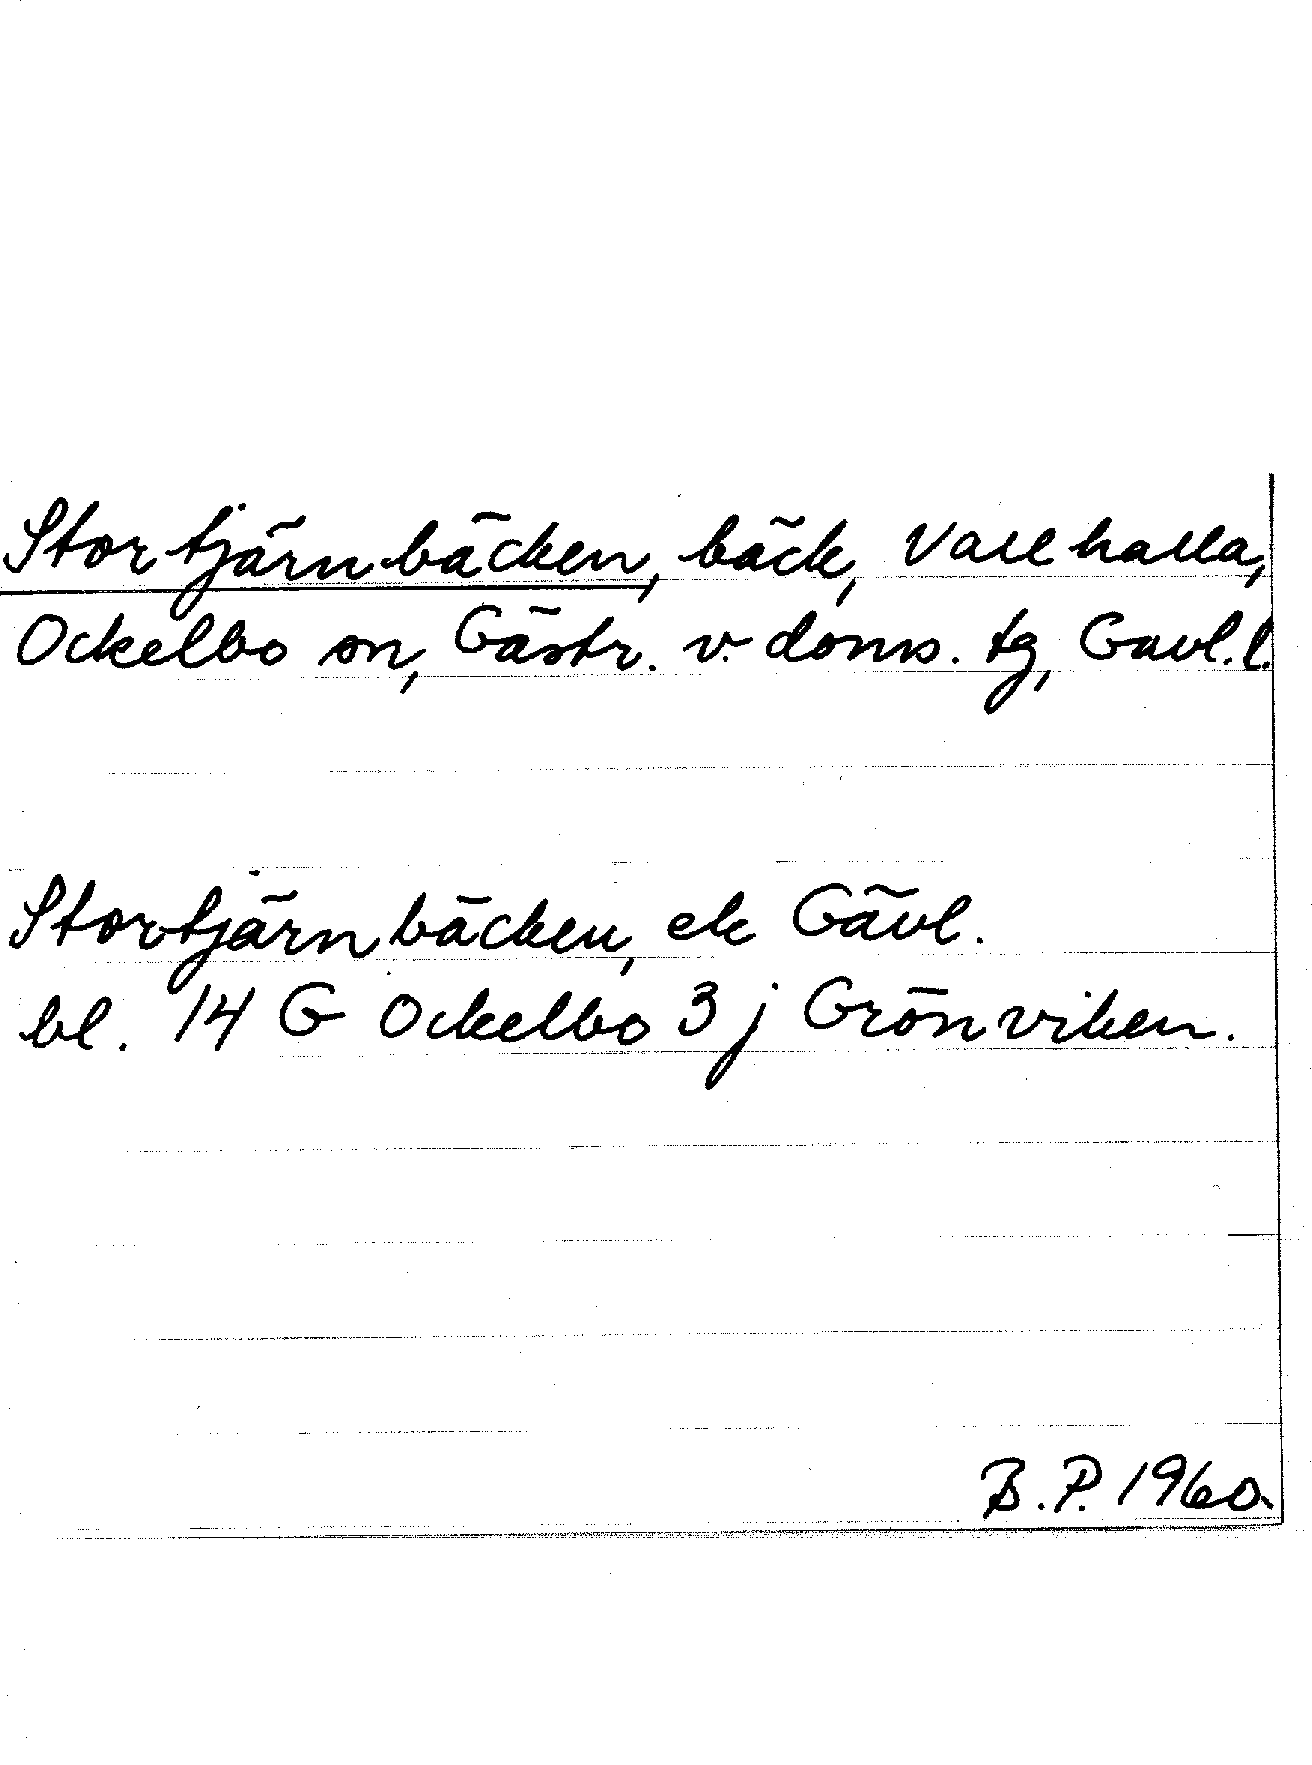 Stortjärnbäcken, bäck, Vallhalla,
Ockelbo sn, Gästr. v. doms. tg, Gävl. l.
Stortjärnbäcken, ek Gävl.
bl. 14 G Ockelbo 3 j Grönviken.
B.P. 1960.